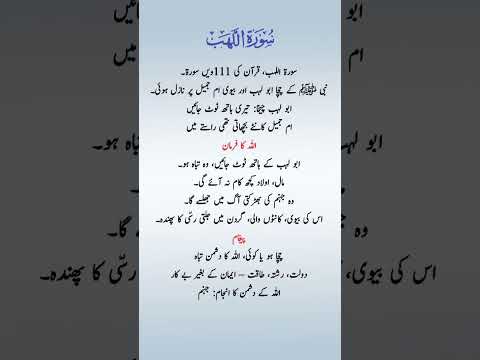 سُورَةُ اللَّهَب
سورۃ اللہب، قرآن کی 111ویں سورۃ۔
نبی ﷺ کے چچا ابو لہب اور بیوی ام جمیل پر نازل ہوئی۔
ابو لہب چیخا: تیری ہاتھ ٹوٹ جائیں
ام جمیل کانٹے بچھاتی تھی راستے میں
اللہ کا فرمان
ابو لہب کے ہاتھ ٹوٹ جائیں، وہ تباہ ہو۔
مال، اولاد کچھ کام نہ آئے گی۔
وہ جہنم کی بھڑکتی آگ میں جھلسے گا۔
اس کی بیوی، کانٹوں والی، گردن میں جلتی رسّی کا پھندہ۔
پیغام
چچا ہو یا کوئی، اللہ کا دشمن تباہ
دولت، رشتہ، طاقت – ایمان کے بغیر بے کار
اللہ کے دشمن کا انجام: جہنم
اس کی بیوی،
رسّی کا پھندہ۔